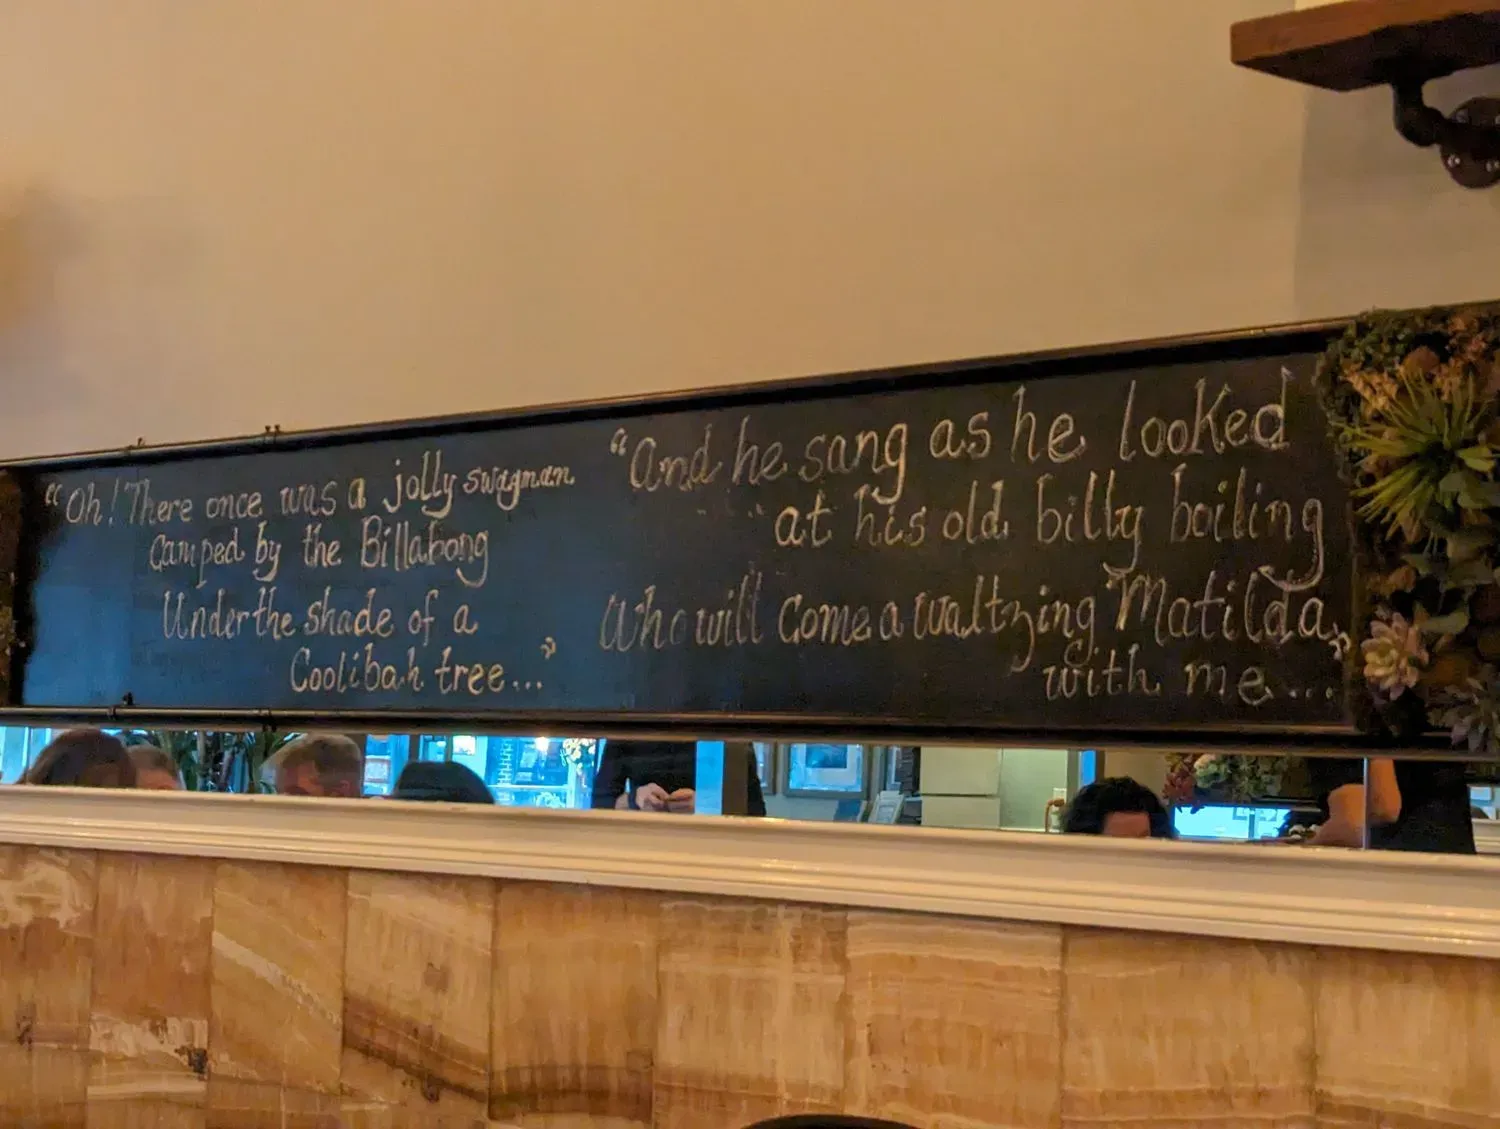 “Oh! There once was a jolly swagman
Camped by the Billabong
Under the shade of a
Coolibah tree...”
“And he sang as he looked
at his old billy boiling
Who will come a waltzing Matilda,
with me...”